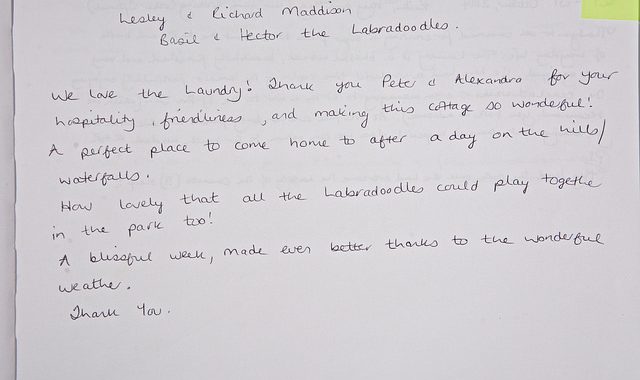 Lesley & Richard Maddison
Basil & Hector the Labradoodles.
We love the Laundry! Thank you Peter & Alexandra for your
hospitality, friendliness, and making this cottage so wonderful!
A perfect place to come home to after a day on the hills/
waterfalls.
How lovely that all the Labradoodles could play togethe
in the park too!
A blissful week, made even better thanks to the wonderful
weather.
Thank You.